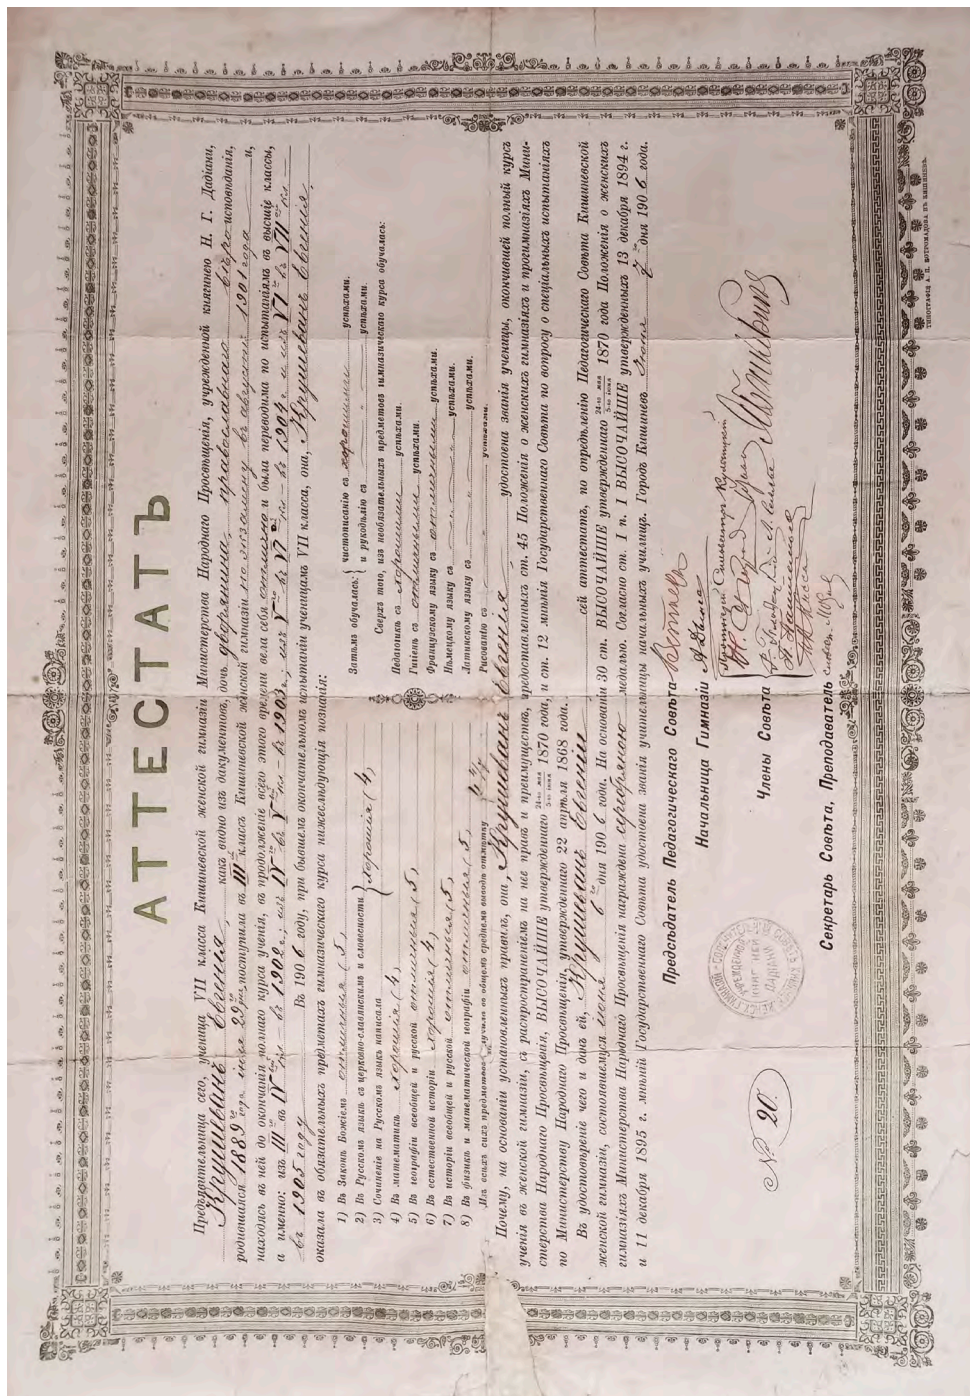 АТТЕСТАТЪ
Предъявительница сего, ученица VII класса Кишиневской женской гимназіи Министерства Народнаго Просвѣщенія, учрежденной княгинею Н. Г. Дадіани,
Крушеванъ Евгенія, какъ видно изъ документовъ, дочь дворянина, православнаго вѣроисповѣданія,
родившаяся 1889 года іюля 29 дня поступила въ III классъ Кишиневской женской гимназіи по экзамену въ августѣ 1901 года и,
находясь въ ней до окончанія полнаго курса ученія, въ продолженіе всего этого времени вела себя отлично и была переводима по испытаніямъ въ высшіе классы,
а именно: изъ III въ IV кл. въ 1902 г.; изъ IV въ V кл. въ 1903 г.; изъ V въ VI кл. въ 1904 г. и изъ VI въ VII кл.
въ 1905 году Въ 1906 году, при бывшемъ окончательномъ испытаніи ученицамъ VII класса, она, Крушеванъ Евгенія,
оказала въ обязательныхъ предметахъ гимназическаго курса нижеслѣдующія познанія:
1) Въ Законѣ Божіемъ отличныя (5)
2) Въ Русскомъ языкѣ съ церковно-славянскимъ и словесности
3) Сочиненіе на Русскомъ языкѣ написала } хорошія (4)
4) Въ математикѣ хорошія (4)
5) Въ географіи всеобщей и русской отличныя (5)
6) Въ естественной исторіи хорошія (4)
7) Въ исторіи всеобщей и русской отличныя (5)
8) Въ физикѣ и математической географіи отличныя (5)
Изъ всѣхъ сихъ предметовъ получила въ общемъ среднемъ выводѣ отмѣтку 4
Затѣмъ обучалась: { чистописанію съ хорошими успѣхами.
и рукодѣлію съ " успѣхами.
Сверхъ того, изъ необязательныхъ предметовъ гимназическаго курса обучалась:
Педагогикѣ съ хорошими успѣхами.
Гигіенѣ съ отличными успѣхами.
Французскому языку съ отличными успѣхами.
Нѣмецкому языку съ " успѣхами.
Латинскому языку съ " успѣхами.
Рисованію съ " успѣхами.
Почему, на основаніи установленныхъ правилъ, она, Крушеванъ Евгенія удостоена званія ученицы, окончившей полный курсъ
ученія въ женской гимназіи, съ распространеніемъ на нее правъ и преимуществъ, предоставленныхъ ст. 45 Положенія о женскихъ гимназіяхъ и прогимназіяхъ Мини-
стерства Народнаго Просвѣщенія, ВЫСОЧАЙШЕ утвержденнаго 24-го мая 5-го іюня 1870 года, и ст. 12 мнѣнія Государственнаго Совѣта по вопросу о спеціальныхъ испытаніяхъ
по Министерству Народнаго Просвѣщенія, утвержденнаго 22 апрѣля 1868 года.
Въ удостовѣреніе чего и данъ ей, Крушеванъ Евгеніи сей аттестатъ, по опредѣленію Педагогическаго Совѣта Кишиневской
женской гимназіи, состоявшемуся іюня 6 дня 1906 года. На основаніи 30 ст. ВЫСОЧАЙШЕ утвержденнаго 24-го мая 5-го іюня 1870 года Положенія о женскихъ
гимназіяхъ Министерства Народнаго Просвѣщенія награждена серебряною медалью. Согласно ст. 1 п. 1 ВЫСОЧАЙШЕ утвержденныхъ 13 декабря 1894 г.
и 11 декабря 1895 г. мнѣній Государственнаго Совѣта удостоена званія учительницы начальныхъ училищъ. Городъ Кишиневъ Іюня дня 1906 года.
Предсѣдатель Педагогическаго Совѣта
Начальница Гимназіи
Члены Совѣта
Секретарь Совѣта, Преподаватель
№ 20.
ТИПОГРАФІЯ
ВЪ КИШИНЕВѢ.